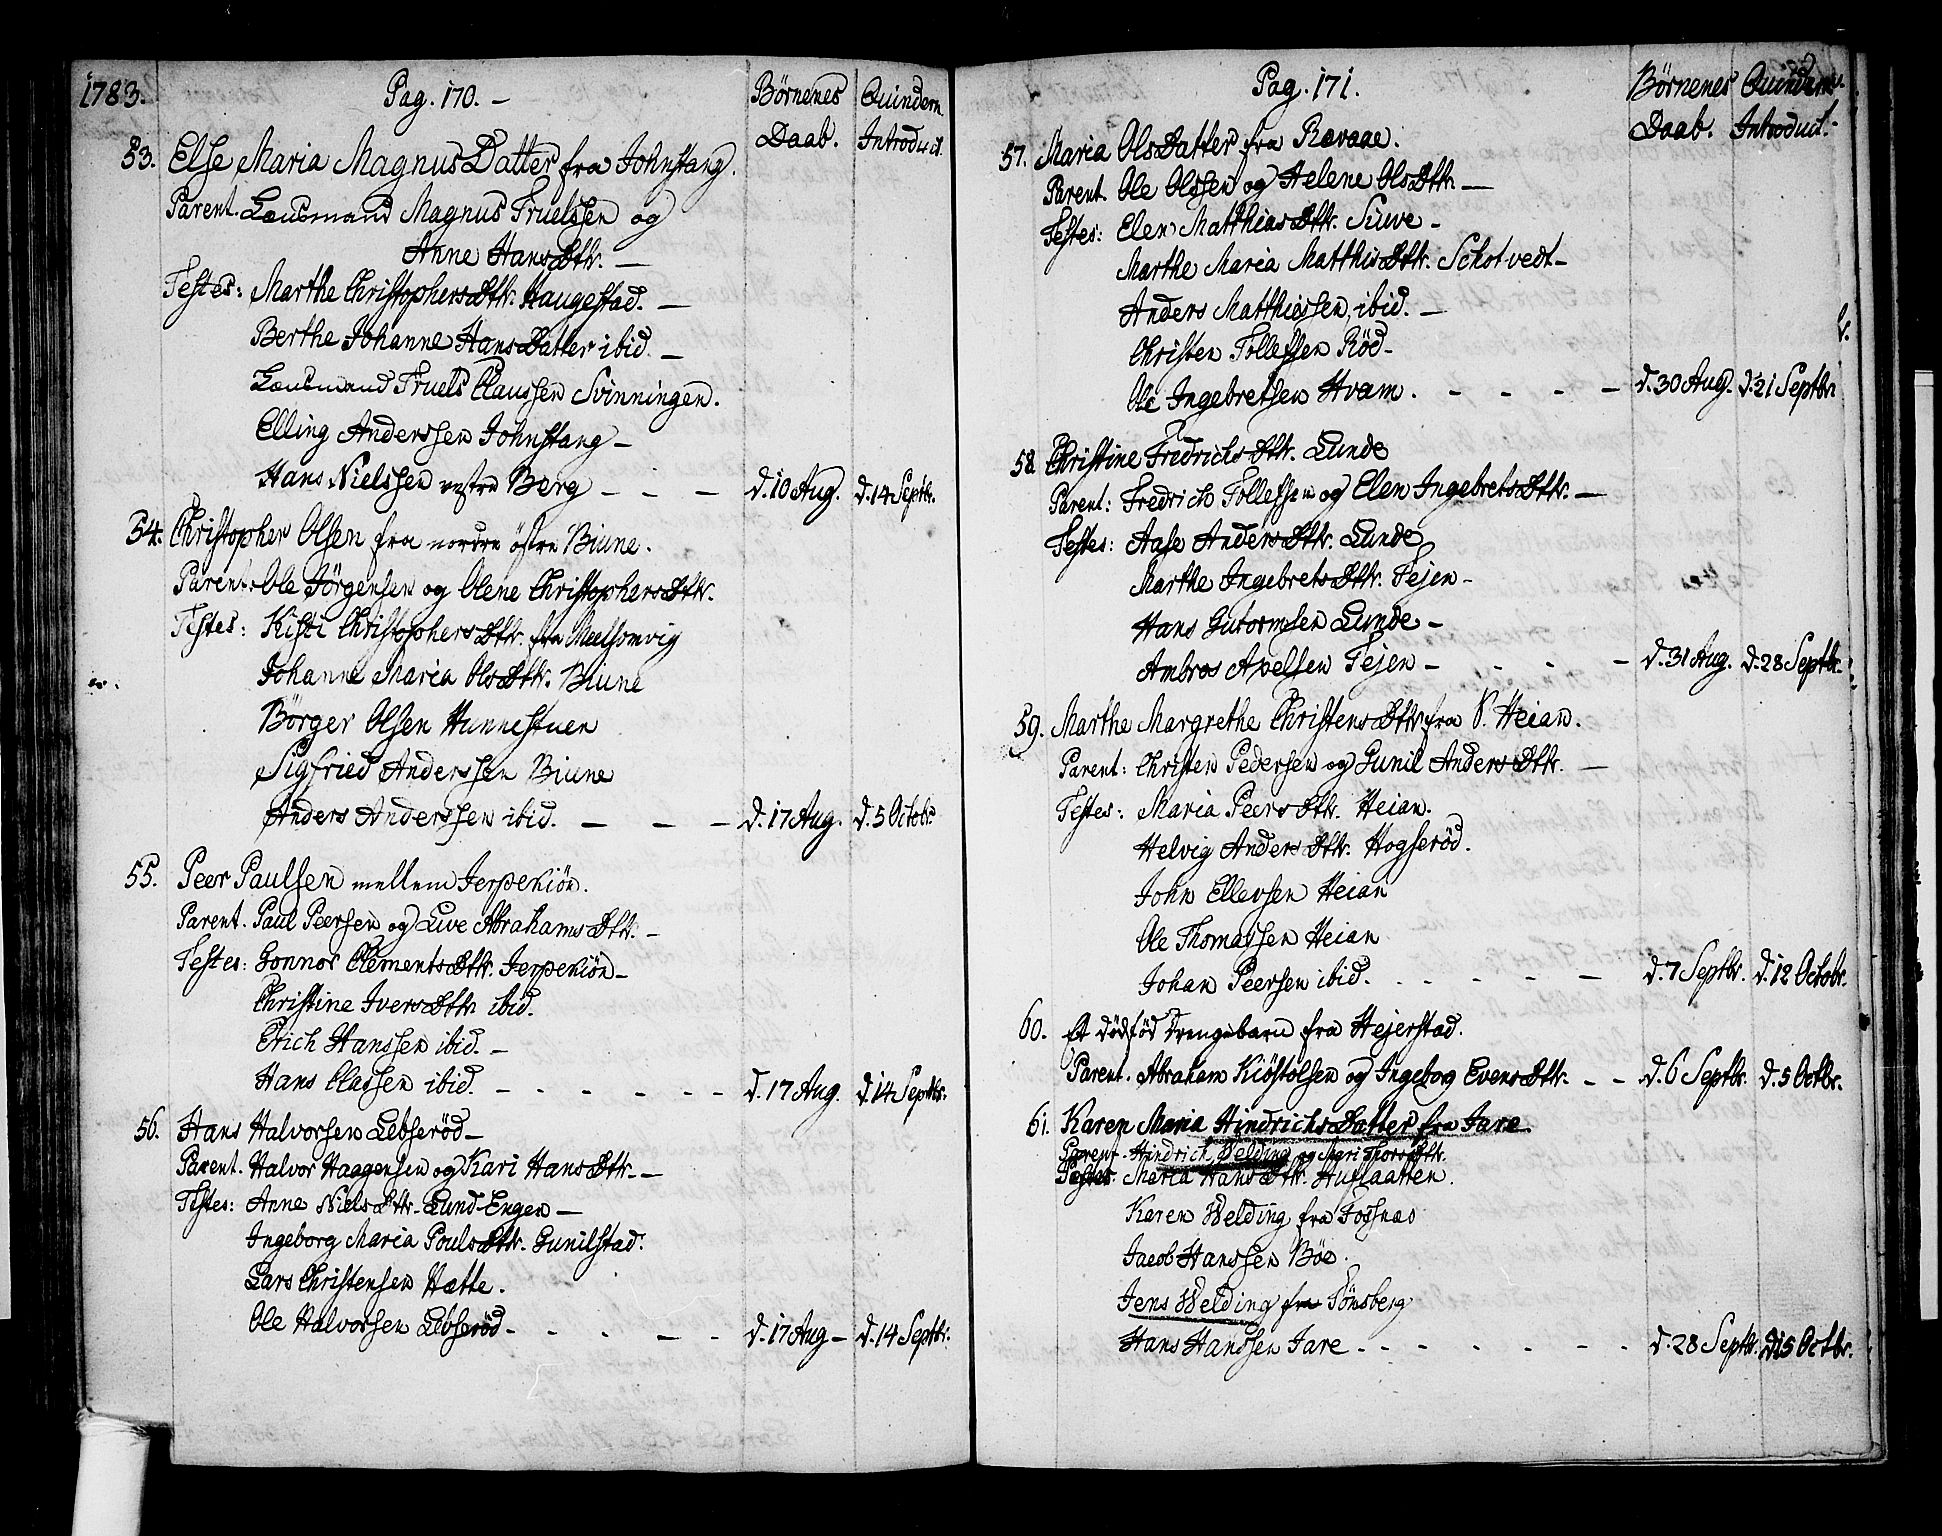 1783.
Pag. 170. –
Börnenes Daab.
Quindern Introduct.
53. Else Maria Magnus Datter fra Johnstang.
Parent. Lænsmand Magnus Truelssen og
Anne Hans Dttr. –
Testes: Marthe Christophers Dttr. Haugestad. –
Berthe Johanne Hans Datter ibid. –
Lænsmand Truels Claussen Svinningen.
Elling Anderssen Johnstang –
Hans Nielssen vestre Berg – – – d. 10 Aug. d. 14 Septbr.
54. Christopher Olsen fra nordre östre Biune.
Parent. Ole Jörgensen og Olene Christophers Dttr.
Testes: Kisti Christophers Dttr. fra Meelsomvig
Johanne Maria Ols Dttr. Biune
Börger Olsen Hunnestuen
Sigfried Anderssen Biune
Anders Anderssen ibid. – – – d. 17 Aug. d. 5 Octobr.
55. Peer Paulsen mellem Jerpekiön.
Parent. Paul Peersen og Live Abrahams Dttr. –
Testes: Gonnor Clements Dttr. Jerpekiön –
Christine Ivers Dttr ibid.
Erich Hanssen ibid. –
Hans Classen ibid. – – – – – – d. 17 Aug. d. 14 Septbr.
56. Hans Halvorsen Lebseröd –
Parent. Halvor Haagensen og Kari Hans Dttr. –
Testes: Anne Niels Dttr. Lund-Engen –
Ingeborg Maria Pouls Dttr. Gunilstad.
Lars Christensen Hætte.
Ole Halvorsen Lebseröd – – – – – d. 17 Aug – d. 14 Septbr.
Pag. 171.
Börnenes Daab.
Quindern. Introduct. –
57. Maria Ols Datter fra Rævaae.
Parent. Ole Olssen og Helene Ols Dttr –
Testes: Elen Matthias Dttr. Suwe –
Marthe Maria Matthis Dttr. Schotvedt –
Anders Matthiassen, ibid. –
Christen Tollefsen Röd –
Ole Ingebretsen Hvam. – – – – d. 30 Aug. d. 21 Septbr.
58. Christine Fredrichs Dttr. Lunde
Parent: Fredrich Tollefsen og Elen Ingebrets Dttr. –
Testes: Aase Anders Dttr. Lunde
Marthe Ingebrets Dttr. Fejen –
Hans Gutormsen Lunde –
Ambros Axelsen Fejen – – – – d. 31 Aug. d. 28 Septbr.
59. Marthe Margrethe Christens Dttr fra S. Heian.
Parent: Christen Pedersen og Gunil Anders Dttr. –
Testes: Maria Peers Dttr. Heian.
Helvig Anders Dttr. Hogseröd.
John Ellevsen Heian
Ole Thomassen Heian
Johan Peersen ibid. – – – – – d. 7 Septbr. d. 12 Octobr.
60. Et dödföd Drengebarn fra Hejerstad.
Parent. Abraham Kiöstolsen og Ingeborg Evens Dttr. – – d. 6 Septbr. d. 5 Octbr.
61. Karen Maria Hindrichs Datter fra Jare.
Parent. Hindrich Welding og Mari Thors Dttr.
Testes: Maria Hans Dttr. Huflaatten.
Karen Welding fra Fossnæs
Jacob Hanssen Böe.
Jens Welding fra Tönsberg
Hans Hanssen Jare. – – – – – – d. 28 Septbr. d. 15 Octbr.